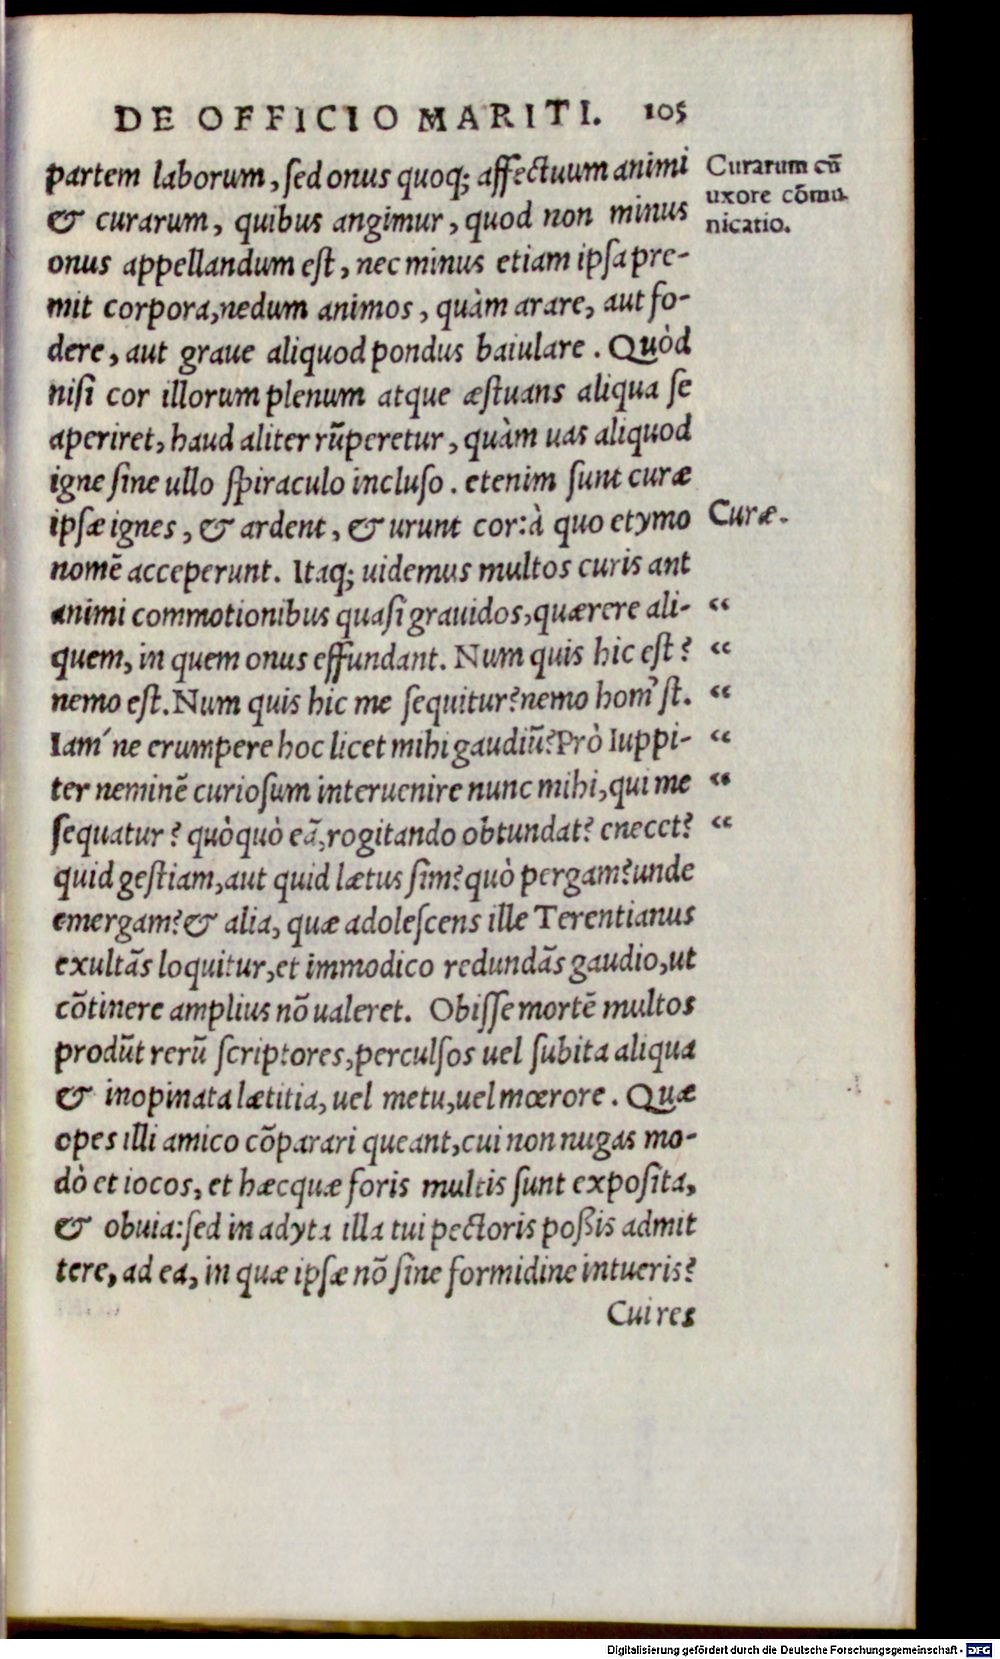 DE OFFICIO MARITI. 105
partem laborum, ſed onus quoq; affectuum animi
& curarum, quibus angimur, quod non minus
onus appellandum eſt, nec minus etiam ipſa pre-
mit corpora, nedum animos, quàm arare, aut fo-
dere, aut graue aliquod pondus baiulare. Quòd
niſi cor illorum plenum atque æſtuans aliqua ſe
aperiret, haud aliter rũperetur, quàm uas aliquod
igne ſine ullo ſpiraculo incluſo. etenim ſunt curæ
ipſæ ignes, & ardent, & urunt cor: à quo etymo
nomẽ acceperunt. Itaq; uidemus multos curis ant
animi commotionibus quaſi grauidos, quærere ali-
quem, in quem onus effundant. Num quis hic eſt?
nemo eſt. Num quis hic me ſequitur? nemo hom' ſt.
Iam' ne erumpere hoc licet mihi gaudiũ? Prò Iuppi-
ter neminẽ curioſum interuenire nunc mihi, qui me
ſequatur? quòquò eã, rogitando obtundat? enecet?
quid geſtiam, aut quid lætus ſim? quò pergam? unde
emergam? & alia, quæ adoleſcens ille Terentianus
exultãs loquitur, et immodico redundãs gaudio, ut
cõtinere amplius nõ ualeret. Obiſſe mortẽ multos
produ̅t rerũ ſcriptores, perculſos uel ſubita aliqua
& inopinata lætitia, uel metu, uel mœrore. Quæ
opes illi amico cõparari queant, cui non nugas mo-
dò et iocos, et hæc quæ foris multis ſunt expoſita,
& obuia: ſed in adyta illa tui pectoris poßis admit
tere, ad ea, in quæ ipſæ nõ ſine formidine intueris?
Cui res
Curarum cũ
uxore cõmu-
nicatio.
Curæ.
“
“
“
“
“
“
Digitalisierung gefördert durch die Deutsche Forschungsgemeinschaft - DFG